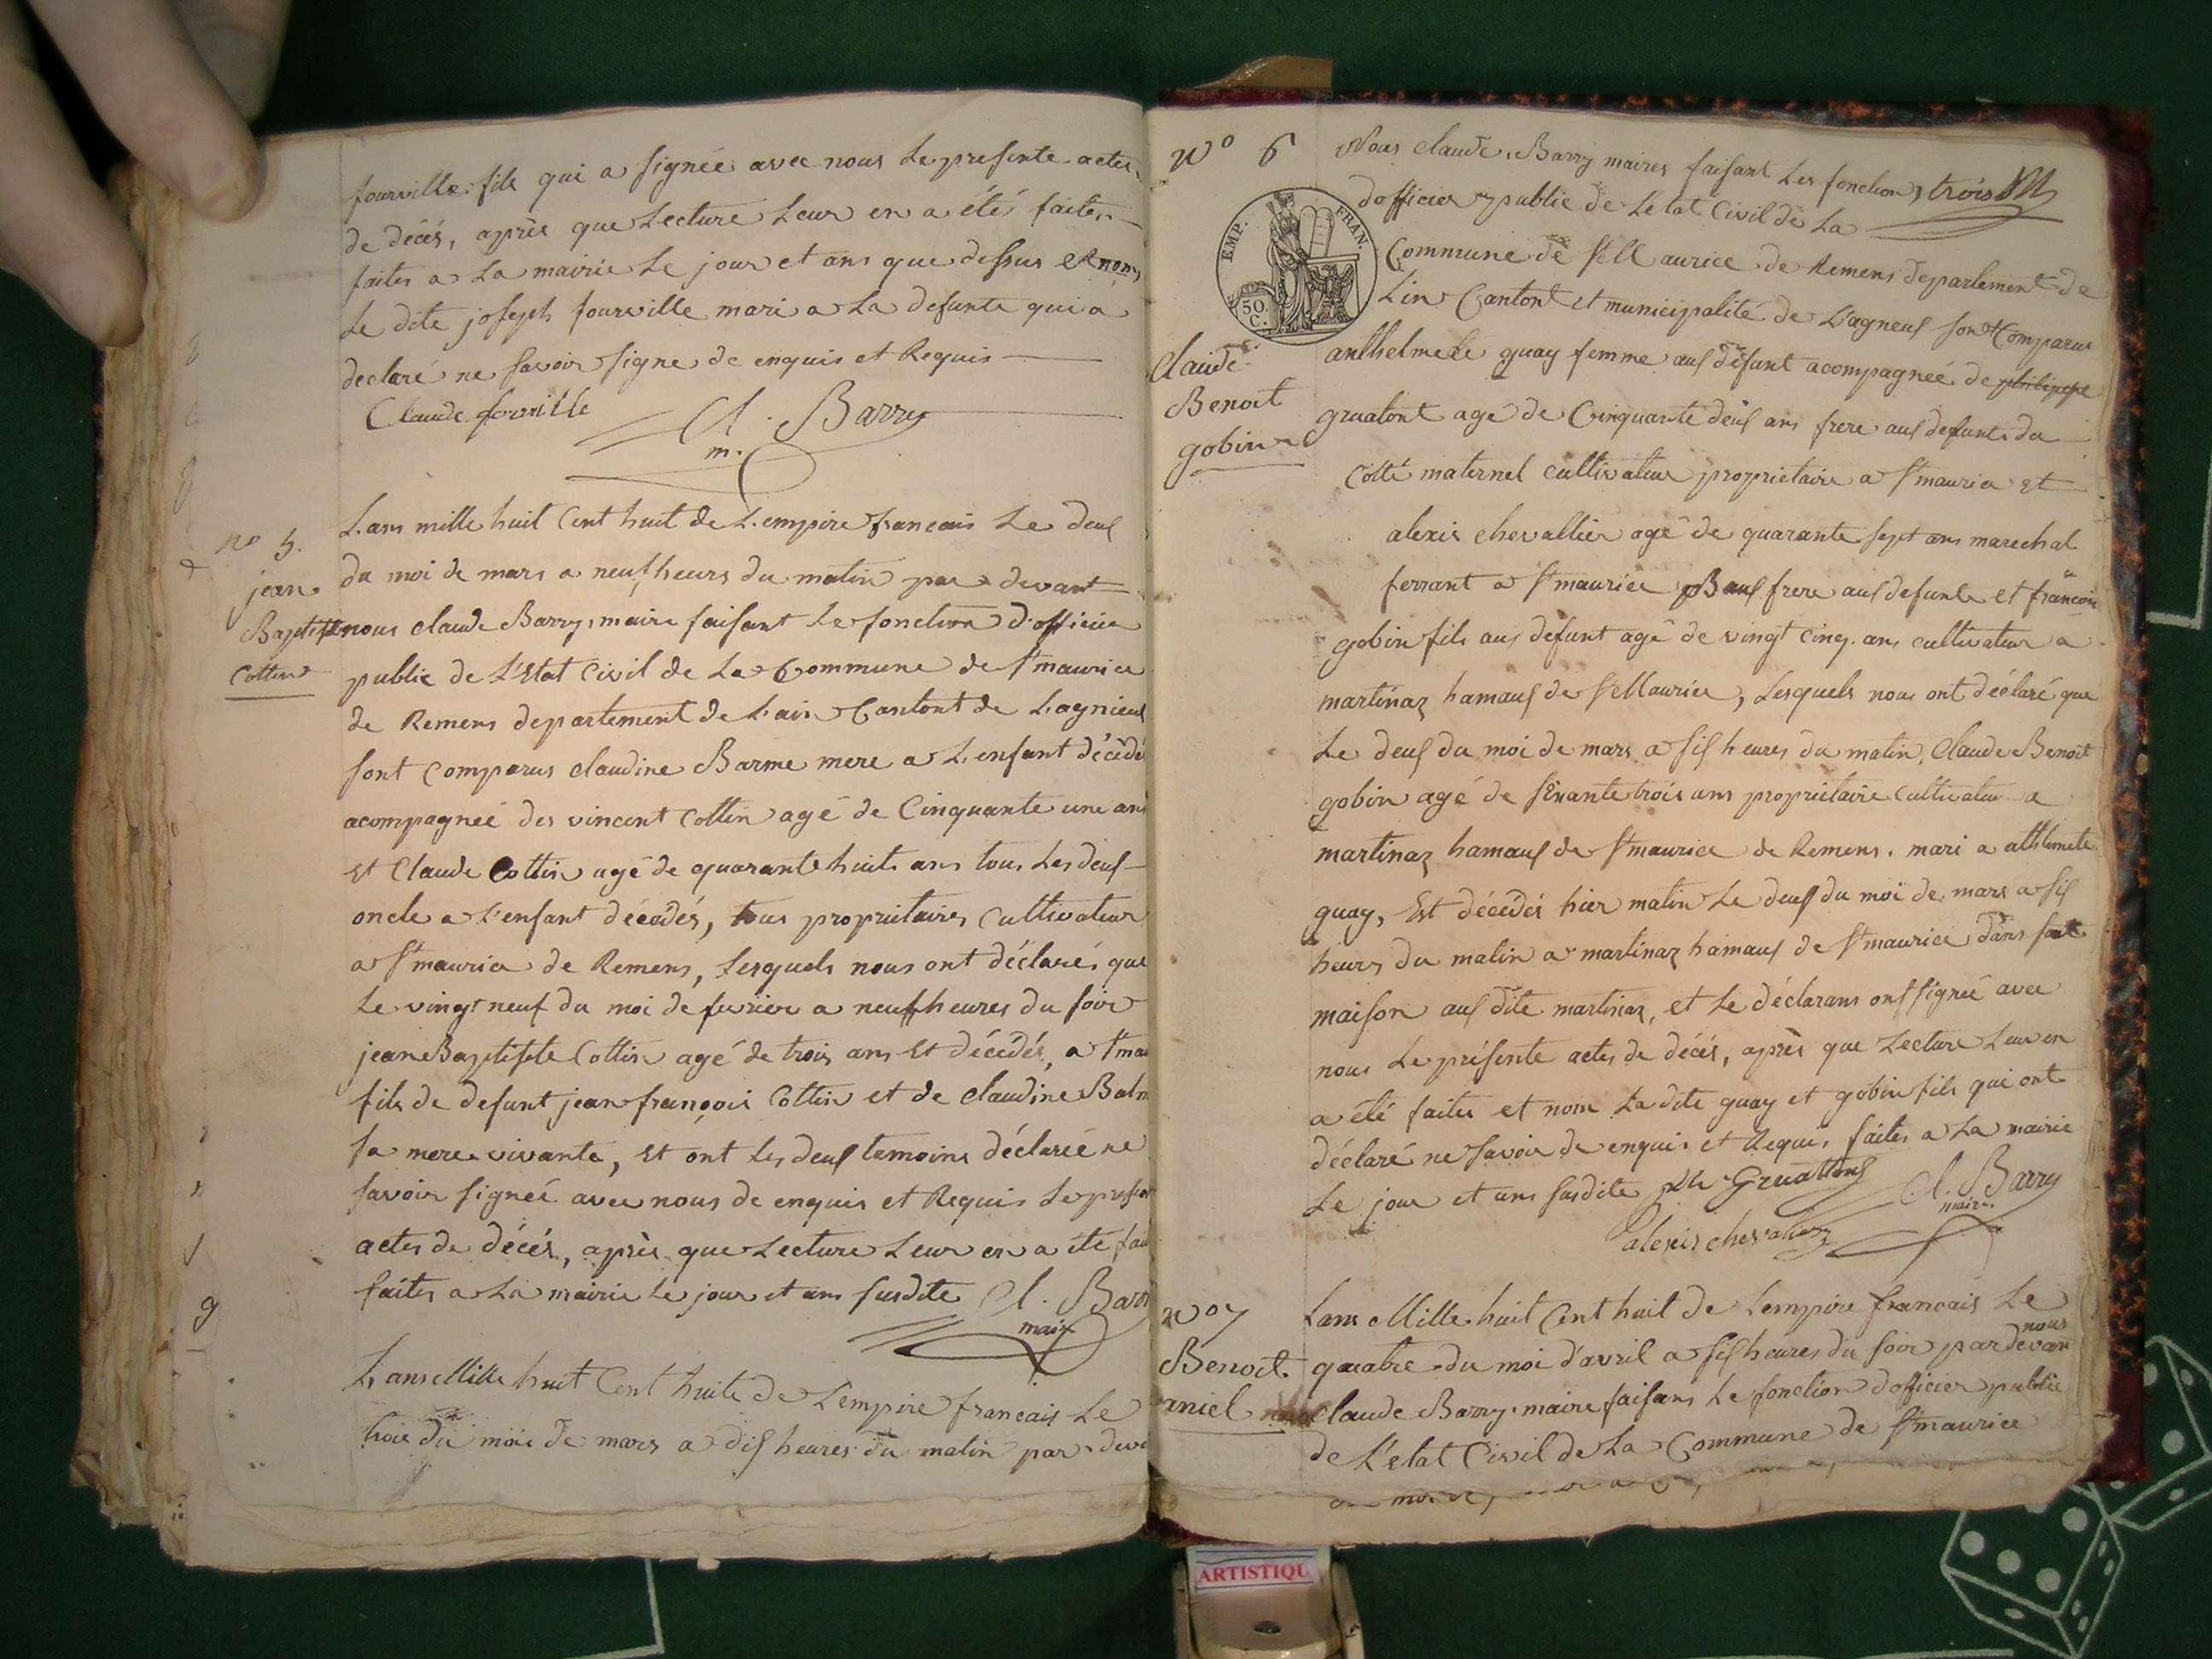 fourville fils qui a signée avec nous Le presente actes
de décés, après que Lecture Leur en a étés faites
faites a La mairie Le jour et ans que dessus et non
Le dite joseph fourville mari a La defunte qui a
declaré ne savoir signe de enquis et Requis
Claude forville
Cl. Barry
m.
no 5.
jean
Baptiste
Cottin
L'ans mille huit Cent huit de L'empire francais Le deux
du moi de mars a neuf heurs du matin par devant
nous claude Barry, maire faisant Le fonction d'officier
public de L'Etat Civil de La Commune de St maurice
de Remens departement de L'ain Cantont de Lagnieux
sont Comparus claudine Barme mere a L'enfant décédé
acompagnéé des vincent Cottin agé de Cinquante une ans
Et Claude Cottin agé de quarante huit ans tous Les deux
oncle a L'enfant décédés, tous proprietaires Cultivateur
a St maurice de Remens, Lesquels nous ont déclarés que
Le vingt neuf du moi de fevrier a neuf heures du soir
jean Baptiste Cottin agé de trois ans Et décédés, a St mau
fils de defunt jean françois Cottin et de Claudine Balm
sa mere vivante, Et ont Les deux temoins déclareé ne
savoir signéé avec nous de enquis et Requis Le presen
actes de décés, après que Lecture Leur en a été fai
faites a La mairie Le jour et ans susdite Cl. Barr
maire
L'ans Mille huit Cent huite de L'empire francais Le
trois du mois de mars a dix heures du matin par deva
No 6
EMP. FRAN.
50. C.
Claude
Benoit
gobin
Nous claude Barry maires faisant Les fonction, trois
d'officier public de Letat Civil de La
Commune de St Maurice de Remens departement de
L'in Cantont et municipalité de L'agneux sont Comparus
anthelmete guay femme aux defunt acompagnéé de philippe
gruatont agé de Cinquante deux ans frere aux defunt du
Cotté maternel cultivateur proprietaire a St maurice et
alexis chevallier agé de quarante sept ans marechal
ferrant a St maurice Baux frere aux defunte et francois
gobin fils aux defunt agé de vingt Cinq. ans cultivateur a
martinaz hamaux de St Maurice, Lesquels nous ont déclaré que
Le deux du moi de mars a six heures du matin, Claude Benoit
gobin agé de soixante trois ans proprietaire Cultivateur a
martinaz hamaux de St maurice de Remens. mari a
guay, Est décédés hier matin Le deux du moi de mars a six
heurs du matin a martinaz hamaux de St maurice dans sa
maison aux dite martinaz, et Le déclarans ont signéé avec
nous Le présente actes de décés, après que Lecture Leur en
a été faites et nom La dite guay et gobin fils qui ont
déclaré ne savoir de enquis et Requis faites a La mairie
Le jour et ans susdite Gruatton Cl. Barry
maire
alexis chevalier
No 7
Benoit
aniel
L'ans Mille huit Cent huit de Lempire francais Le
nous
quatre du moi d'avril a six heures du soir par devan
Claude Barry. maire faisans Le fonction d'officier public
de L'etat Civil de La Commune de St maurice
ARTISTIQU